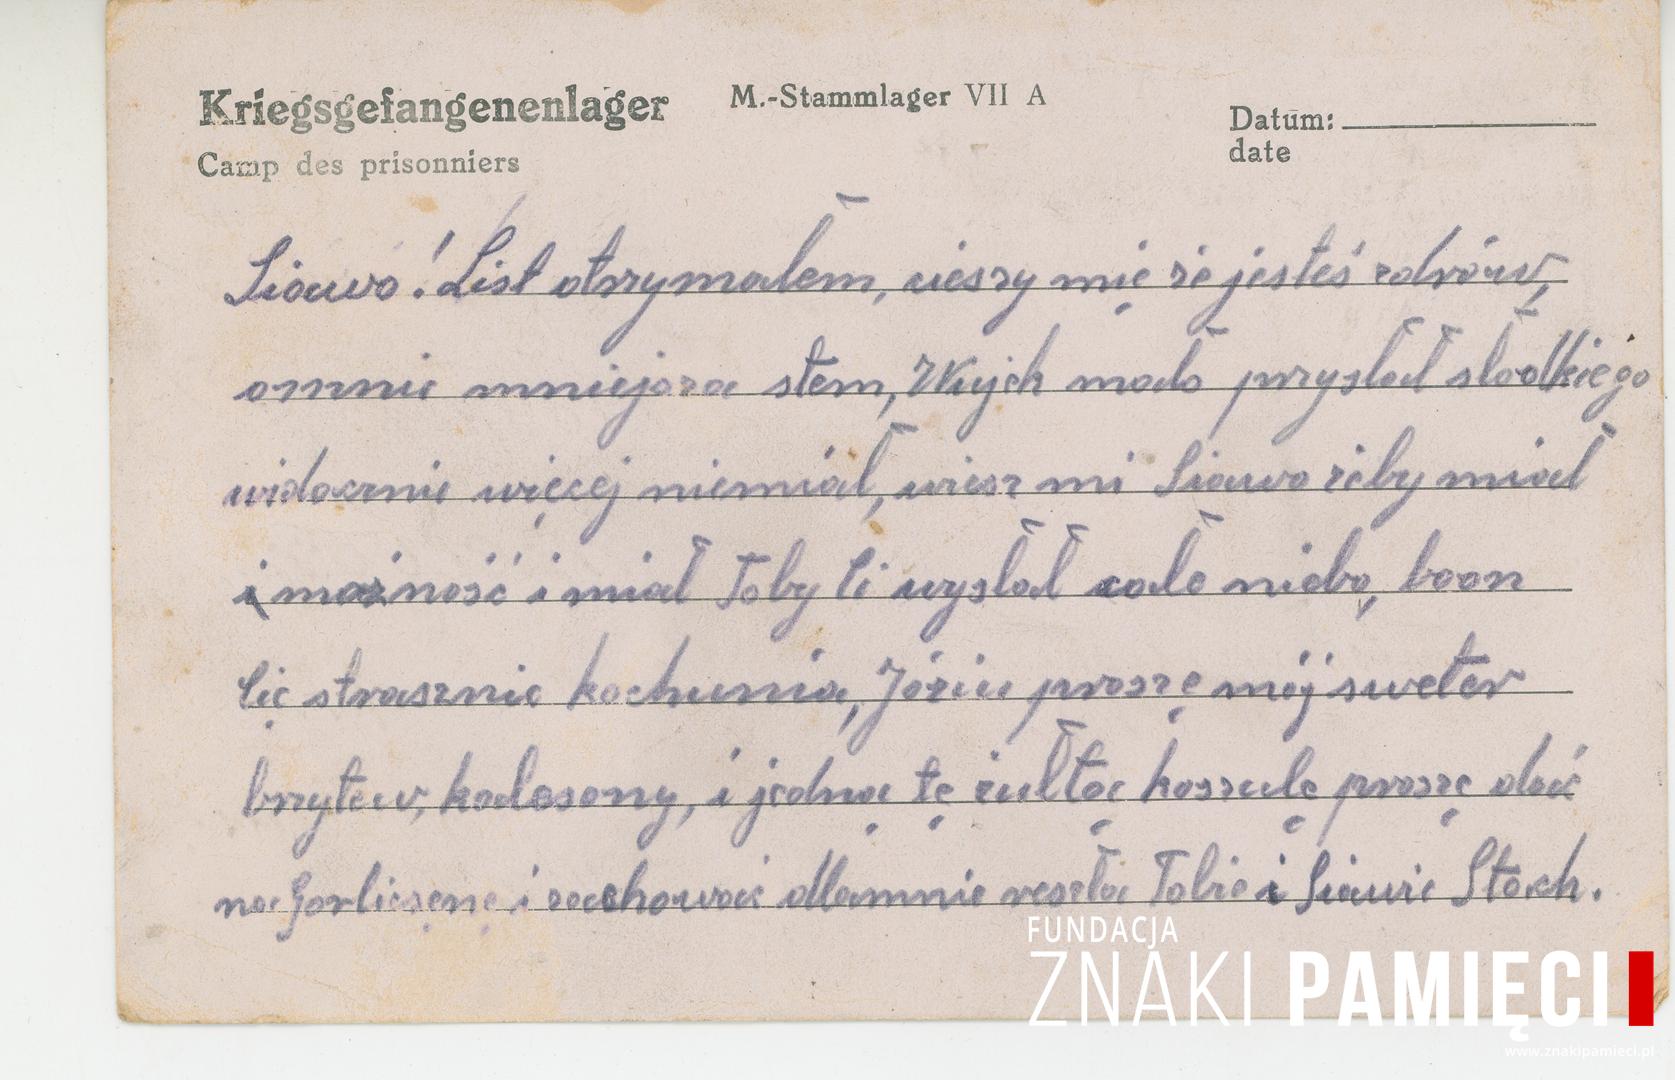 Kriegsgefangenenlager M.-Stammlager VII A
Datum:
Camp des prisonniers
date
Siawo! List otrzymałem, cieszy mię że jesteś zdrów,
omnie mniejsza stem, Wujch mało przysłał słodkiego
widocznie więcej niemiał, wiesz mi Siawo żeby miał
i możność i miał Toby Ci wysłał całe niebo, boon
Cię strasznie kochunia, Józiu proszę mój sweter
brzytew, kalesony, i jedną tę żułtą koszulę proszę dać
na Garliczenę i zachować dlamnie reszta Tobie i Siawie Stach.
FUNDACJA
ZNAKI PAMIĘCI
www.znakipamieci.pl